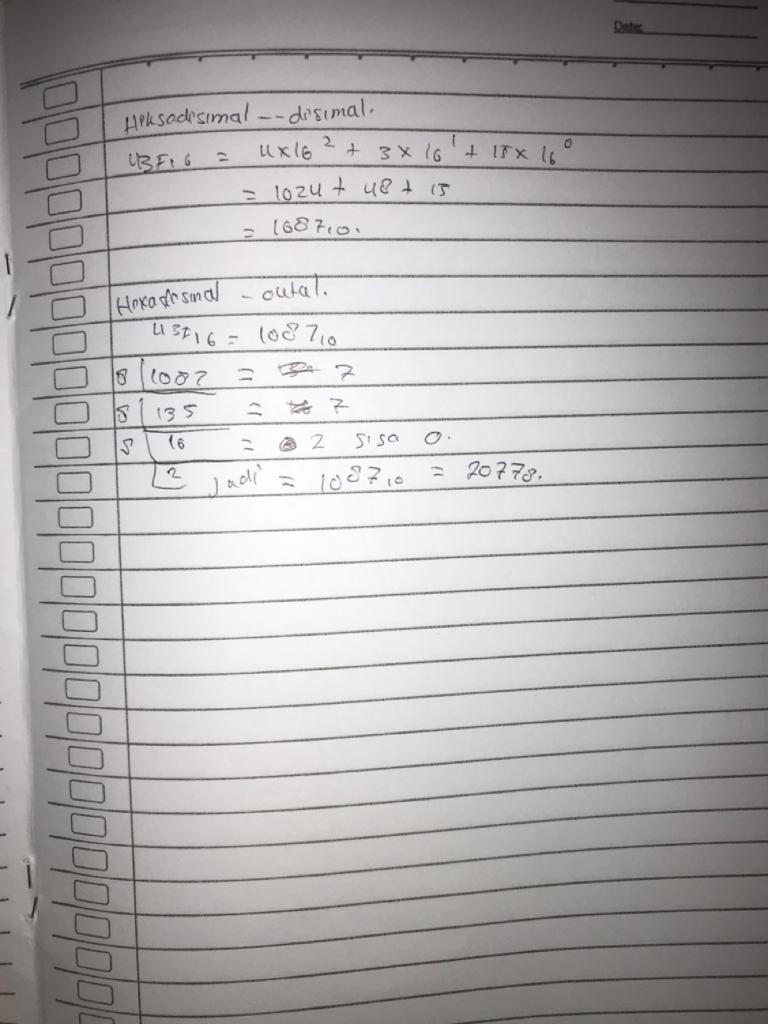 Date:
Heksadesimal -- disimal.
43F16 = 4x16² + 3x16¹ + 15x16⁰
= 1024 + 48 + 15
= 108710.
Hexadesimal - outal.
43F16 = 108710
8 1087 = 7
8 135 = 7
8 16 = 2 sisa 0.
2 jadi = 108710 = 20778.